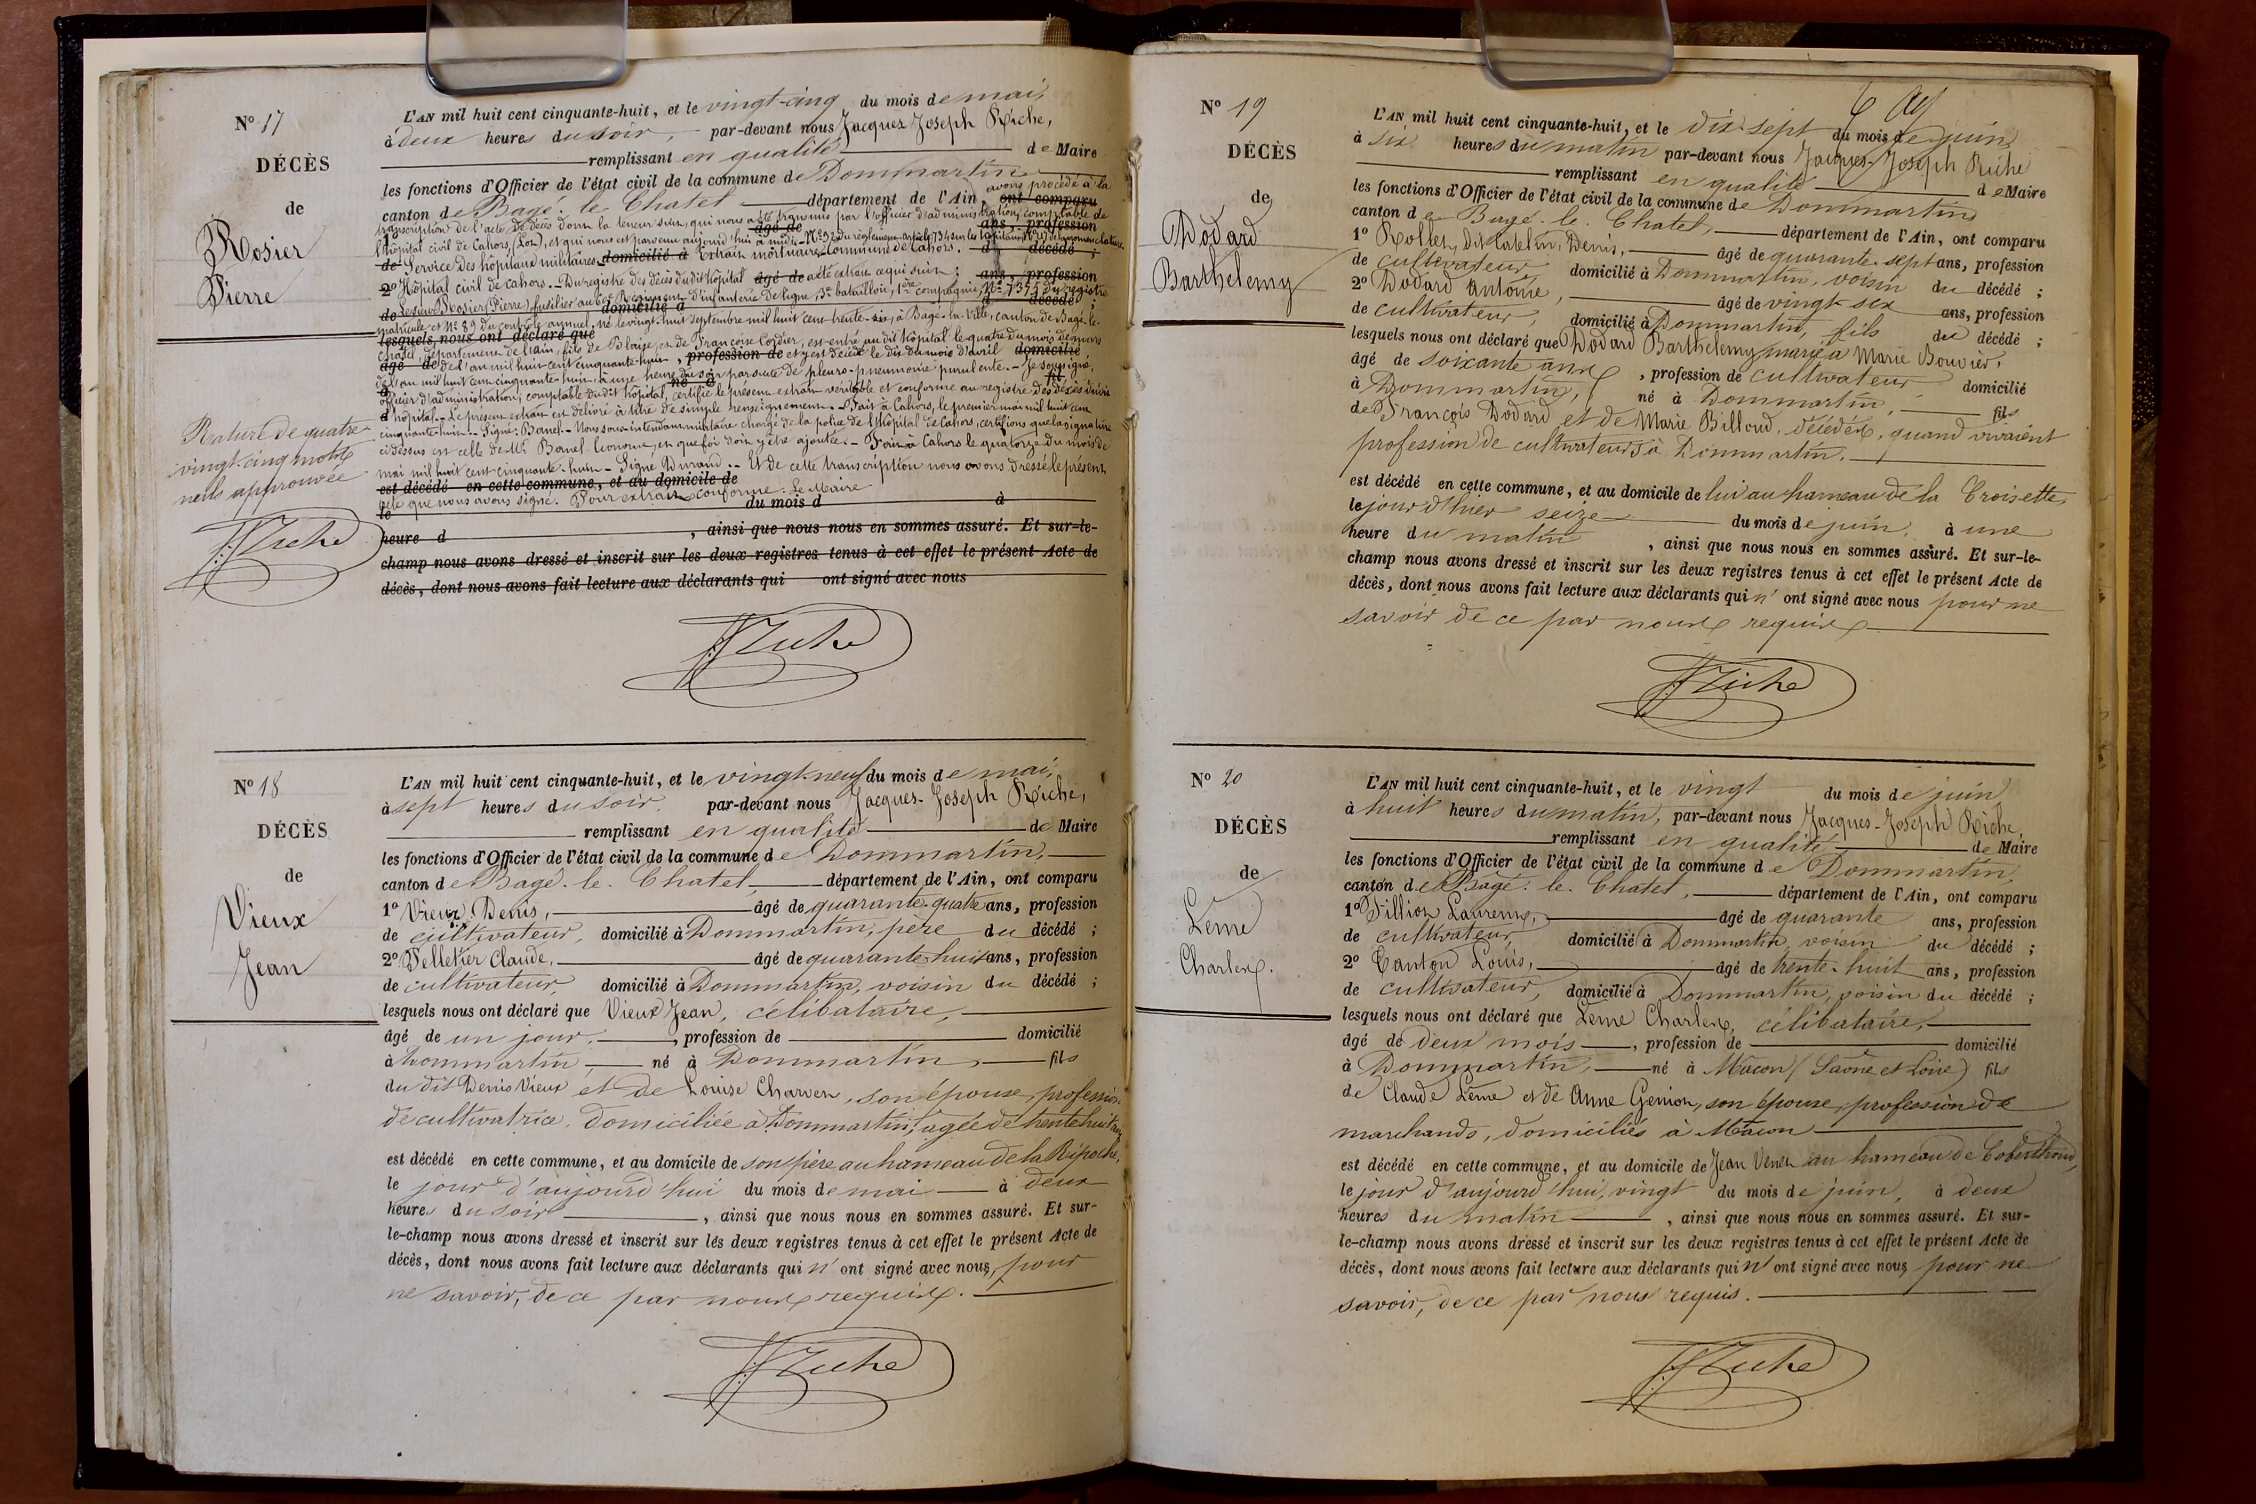 N° 17
DÉCÈS
de
Rosier
Pierre
L'AN mil huit cent cinquante-huit, et le vingt-cinq du mois de mai,
à deux heures du soir, par-devant nous Jacques Joseph Riche,
remplissant en qualité de Maire
les fonctions d'Officier de l'état civil de la commune de Dommartin
canton de Bagé-le-Chatel département de l'Ain, ont comparu avons procédé à la
transcription de l'acte de décès dont la teneur suit, qui nous a été transmis par l'officier d'administration, comptable de
l'hôpital civil de Cahors, (Lot), et qui nous est parvenu aujourd'hui à midi.
de Service des hôpitaux militaires. domicilié à Extrait mortuaire. Commune de Cahors. décédé ;
2° Hôpital civil de Cahors. - Du registre des décès du dit hôpital âgé de a été extrait ce qui suit : ans, profession
de Le sieur Rosier (Pierre) fusilier au Régiment d'infanterie de ligne, 3e bataillon, 1ère compagnie, N° 7375 du registre
domicilié à décédé
matricule et N° 89 du contrôle annuel, né le vingt-huit septembre mil huit cent trente-six, à Bagé-la-Ville, canton de Bagé-le-
lesquels nous ont déclaré que
chatel, département de l'ain, fils de Blaise, et de Françoise Cordier, est entré au dit hôpital le quatre du mois de mars
âgé de de l'an mil huit cent cinquante-huit, profession de et y est décédé le dix du mois d'avril domicilié
de l'an mil huit cent cinquante-huit, à une heure du soir par suite de pleuro-pneumonie purulente. - Je soussigné,
officier d'administration, comptable du dit hôpital, certifie le présent extrait véritable et conforme au registre des décès dudit
hôpital. - Le présent extrait est délivré à titre de simple renseignement. - Fait à Cahors, le premier mai mil huit cent
cinquante-huit. - Signé : Banel. - Nous sous-intendant militaire chargé de la police de l'hôpital de Cahors, certifions que la signature
ci-dessus est celle de Mr Banel et que foi doit y être ajoutée. - Fait à Cahors le quatorze du mois de
mai mil huit cent cinquante-huit - Signé Durand. - Et de cette transcription nous avons dressé le présent
est décédé en cette commune, et au domicile de
acte que nous avons signé. Pour extrait conforme. Le Maire
le du mois d à
heure d , ainsi que nous nous en sommes assuré. Et sur-le-
champ nous avons dressé et inscrit sur les deux registres tenus à cet effet le présent Acte de
décès, dont nous avons fait lecture aux déclarants qui ont signé avec nous
Rature de quatre
vingt-cinq mots
nuls approuvée
JJ Riche
JJ Riche
N° 18
DÉCÈS
de
Vieux
Jean
L'AN mil huit cent cinquante-huit, et le vingt-neuf du mois de mai,
à sept heures du soir, par-devant nous Jacques-Joseph Riche,
remplissant en qualité de Maire
les fonctions d'Officier de l'état civil de la commune de Dommartin,
canton de Bagé-le-Chatel, département de l'Ain, ont comparu
1° Vieux Denis, âgé de quarante-quatre ans, profession
de cultivateur, domicilié à Dommartin, père du décédé ;
2° Pelletier Claude, âgé de quarante-huit ans, profession
de cultivateur, domicilié à Dommartin, voisin du décédé ;
lesquels nous ont déclaré que Vieux Jean, célibataire,
âgé de un jour, profession de domicilié
à Dommartin, né à Dommartin, fils
du dit Denis Vieux et de Louise Charvet, son épouse, profession
de cultivatrice, domiciliée à Dommartin, agée de trente huit ans,
est décédé en cette commune, et au domicile de son père au hameau de la Ripoche,
le jour d'aujourd'hui du mois de mai à deux
heures du soir , ainsi que nous nous en sommes assuré. Et sur-
le-champ nous avons dressé et inscrit sur les deux registres tenus à cet effet le présent Acte de
décès, dont nous avons fait lecture aux déclarants qui n' ont signé avec nous, pour
ne savoir, de ce par nous requis.
JJ Riche
N° 19
DÉCÈS
de
Dodard
Barthelemy
L'AN mil huit cent cinquante-huit, et le dix-sept du mois de juin,
à six heures du matin par-devant nous Jacques-Joseph Riche
remplissant en qualité de Maire
les fonctions d'Officier de l'état civil de la commune de Dommartin
canton de Bagé-le-Chatel, département de l'Ain, ont comparu
1° Rollet, dit Catelin, Denis, âgé de quarante-sept ans, profession
de cultivateur, domicilié à Dommartin, voisin du décédé ;
2° Dodard Antoine, âgé de vingt-six ans, profession
de cultivateur, domicilié à Dommartin, fils du décédé ;
lesquels nous ont déclaré que Dodard Barthelemy, marié à Marie Bouvier,
âgé de soixante ans, profession de cultivateur domicilié
à Dommartin, né à Dommartin, fils
de François Dodard et de Marie Billoud, décédés, quand vivaient
profession de cultivateurs à Dommartin.
est décédé en cette commune, et au domicile de lui au hameau de la Croisette,
le jour d'hier seize du mois de juin, à une
heure du matin , ainsi que nous nous en sommes assuré. Et sur-le-
champ nous avons dressé et inscrit sur les deux registres tenus à cet effet le présent Acte de
décès, dont nous avons fait lecture aux déclarants qui n' ont signé avec nous pour ne
savoir de ce par nous requis
JJ Riche
N° 20
DÉCÈS
de
Lême
Charles.
L'AN mil huit cent cinquante-huit, et le vingt du mois de juin
à huit heures du matin, par-devant nous Jacques-Joseph Riche,
remplissant en qualité de Maire
les fonctions d'Officier de l'état civil de la commune de Dommartin,
canton de Bagé-le-Chatel, département de l'Ain, ont comparu
1° Fillion Laurent, âgé de quarante ans, profession
de cultivateur, domicilié à Dommartin, voisin du décédé ;
2° Canton Louis, âgé de trente-huit ans, profession
de cultivateur, domicilié à Dommartin, voisin du décédé ;
lesquels nous ont déclaré que Lême Charles, célibataire,
âgé de deux mois, profession de domicilié
à Dommartin, né à Mâcon (Saône et Loire) fils
de Claude Lême et de Anne Genion, son épouse, profession de
marchands, domiciliés à Mâcon
est décédé en cette commune, et au domicile de Jean au hameau de
le jour d'aujourd'hui, vingt du mois de juin, à deux
heures du matin , ainsi que nous nous en sommes assuré. Et sur-
le-champ nous avons dressé et inscrit sur les deux registres tenus à cet effet le présent Acte de
décès, dont nous avons fait lecture aux déclarants qui n' ont signé avec nous pour ne
savoir, de ce par nous requis.
JJ Riche